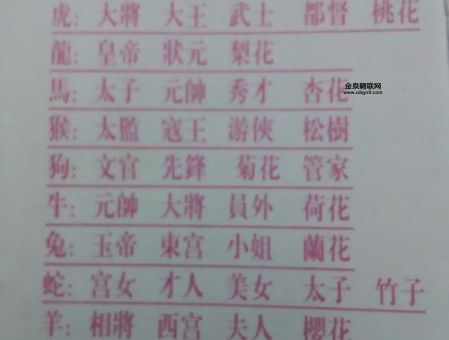 虎: 大將 大王 武士 都督 桃花
龍: 皇帝 狀元 梨花
金泉翻联网
www.sdqyslf.com
馬: 太子 元帥 秀才 杏花
猴: 太監 寇王 游俠 松樹
狗: 文官 先鋒 菊花 管家
牛: 元帥 大將 員外 荷花
兔: 玉帝 東宮 小姐 蘭花
蛇: 宮女 才人 美女 太子 竹子
羊: 相將 西宮 夫人 櫻花